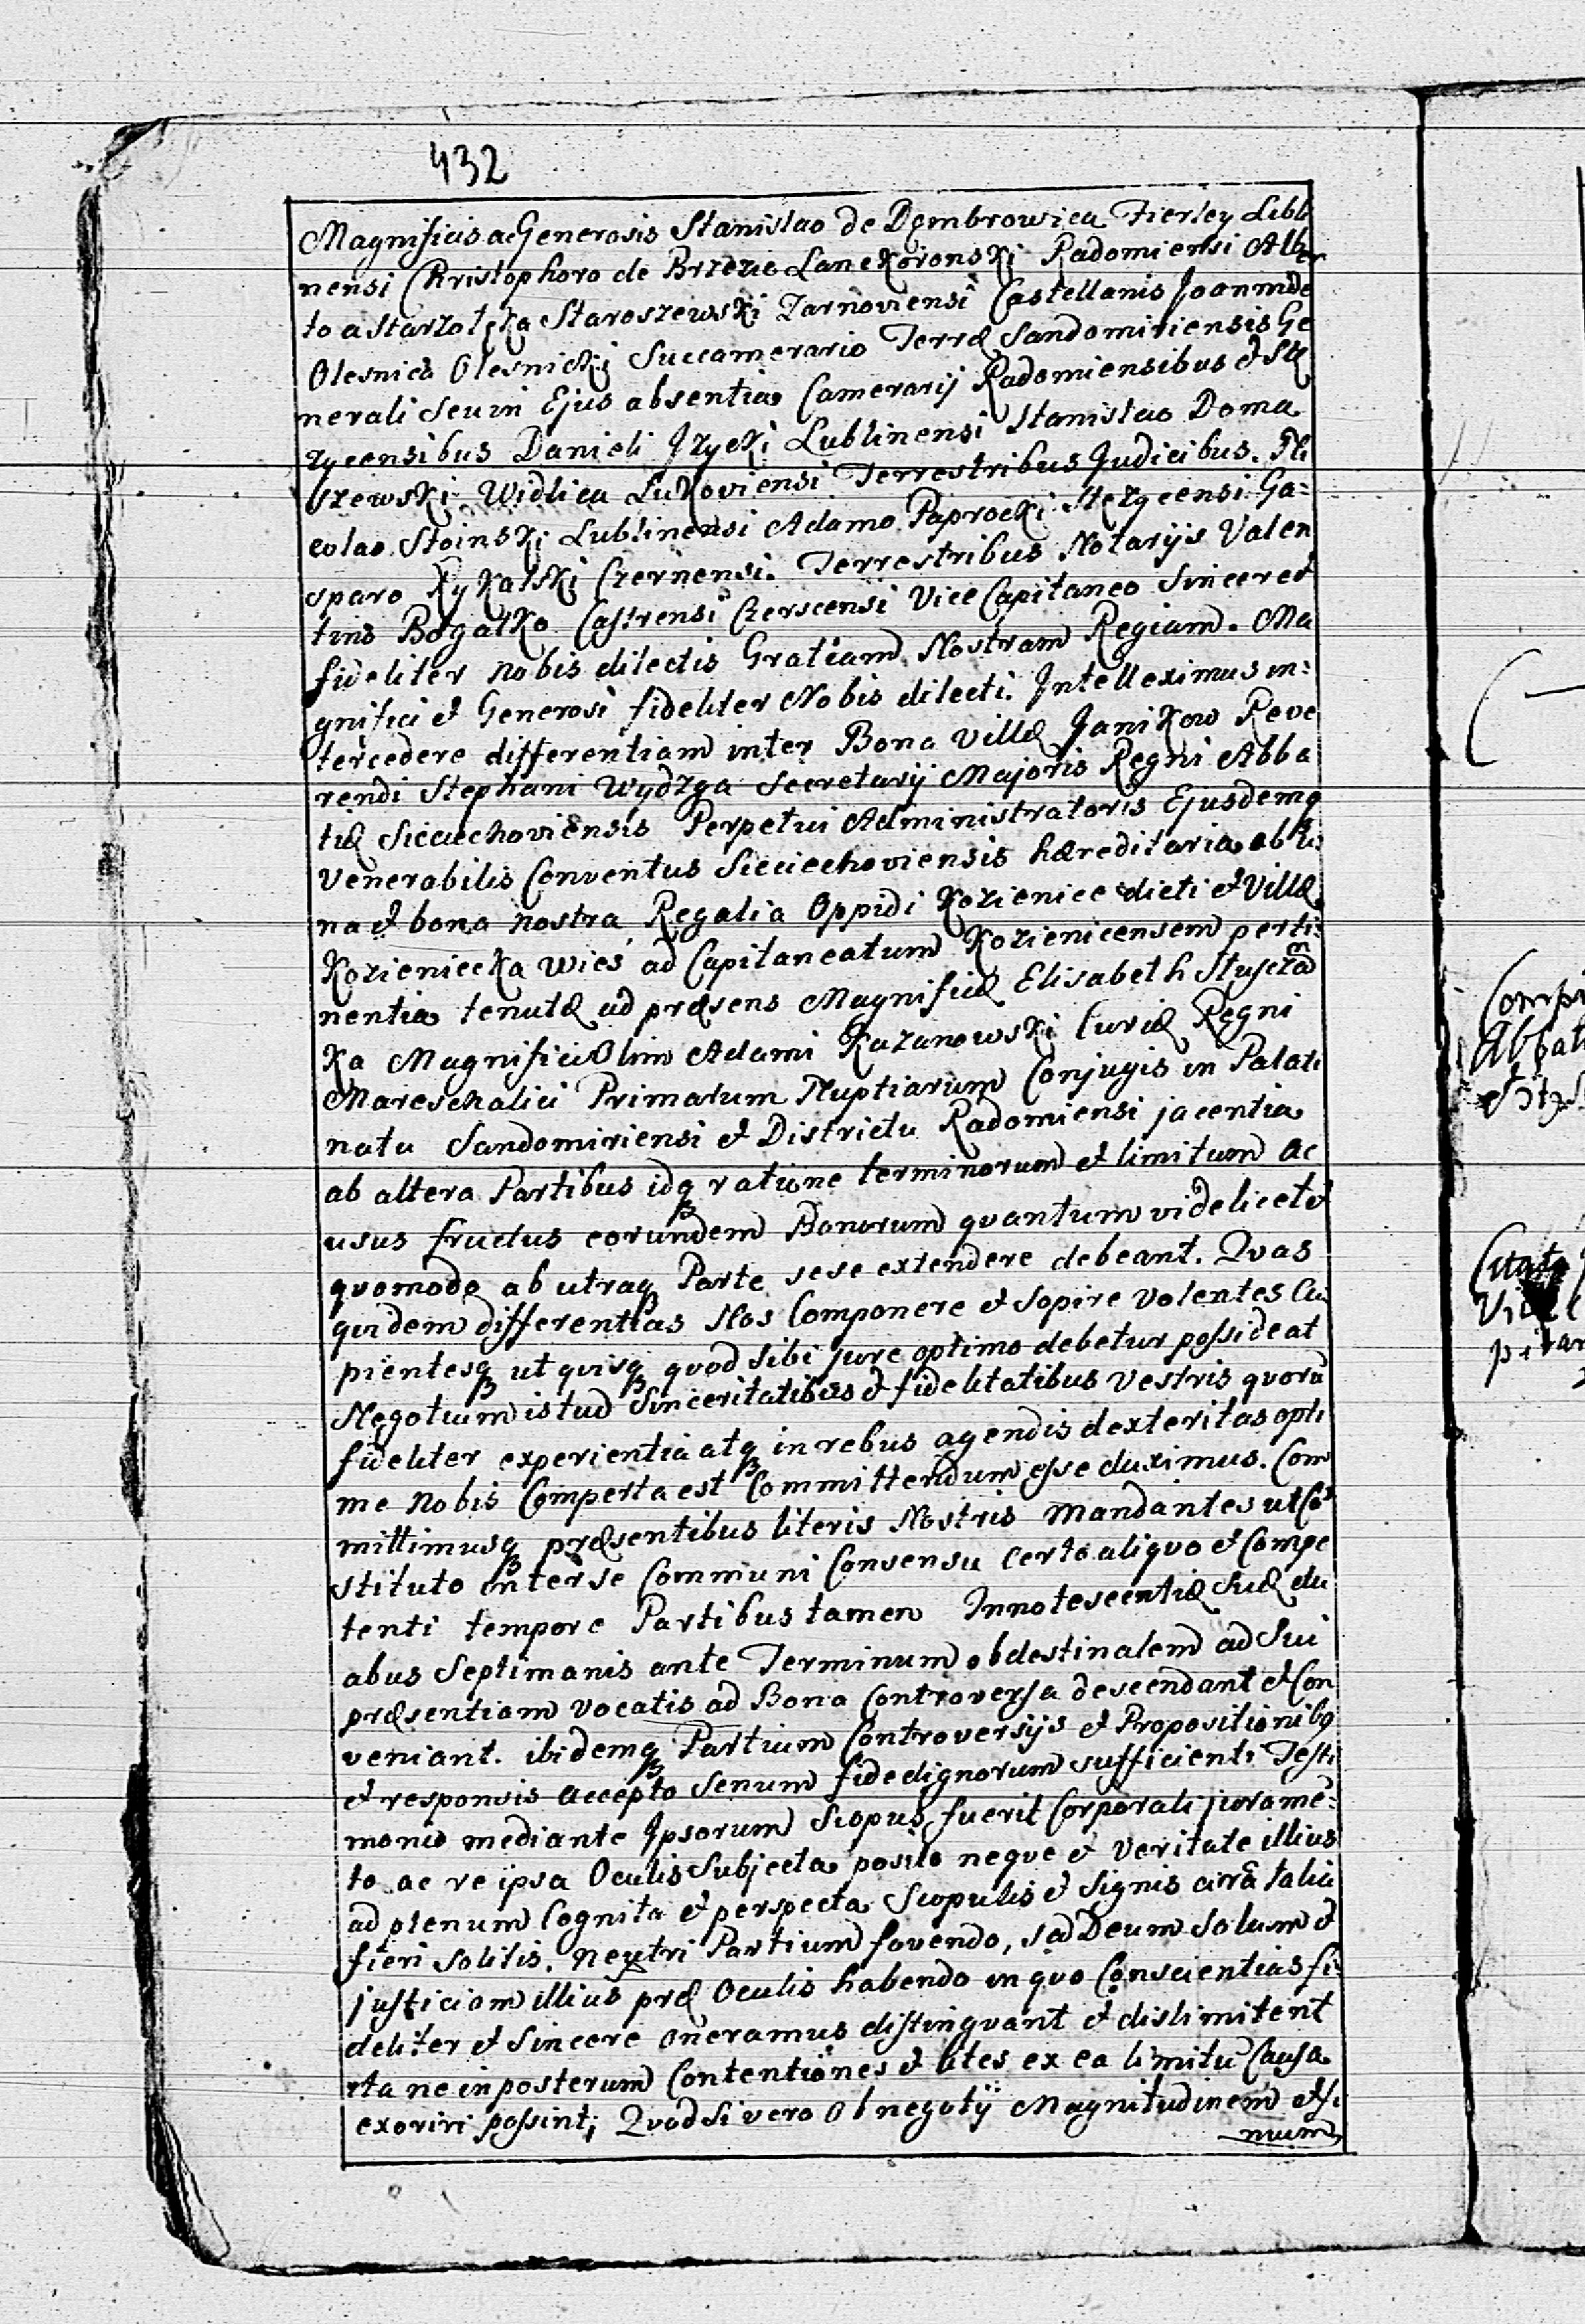 432
Magnificis ac Generosis Stanislao de Dembrowica Fierley Lubli
nensi Christophoro de Brzezie Lanckoronski Radomiensi Alber
to a Starzołęka Staroszewski Zarnoviensi Castellanis Joanni de
Olesnica Olesnicki Succamerario Terræ Sandomiriensis Ge
nerali seu in Ejus absentia Camerarij Radomiensibus et Stę
zycensibus Danieli Jzycki Lublinensi Stanislao Doma
szewski Widlica Lukoviensi Terrestribus Judicibus. Ni
colao Stoinski Lublinensi Adamo Paprocki Stęzycensi Ga=
sparo Rykalski Czernensi. Terrestribus Notarijs Valen
tino Bogatko Castrensi Czerscensi Vice Capitaneo Sincere et
fideliter nobis dilectis Gratiam Nostram Regiam. Ma
gnifici et Generosi fideliter Nobis dilecti. Intelleximus in=
tercedere differentiam inter Bona Villæ Janikow Reve
rendi Stephani Wydzga Secretarij Majoris Regni Abba
tiæ Sieciechoviensis Perpetui Administratoris Ejusdemq
Venerabilis Conventus Sieciechoviensis hæreditaria ab u
na et bona nostra Regalia Oppidi Kozienice dicti et Villæ
Kozieniecka wies ad Capitaneatum Kozienicensem perti=
nentia tenutæ ad præsens Magnificæ Elisabeth Słuszczã
ka Magnifici Olim Adami Kazanowski Curiæ Regni
Mareschalici Primarum Nuptiarum Conjugis in Palati
natu Sandomiriensi et Districtu Radomiensi jacentia
ab altera Partibus idqꝫ ratione terminorum et limitum ac
usus fructus eorundem Bonorum quantum videlicet et
quomodo ab utraqꝫ Parte sese extendere debeant. Quas
quidem differentias Nos Componere et Sopire volentes Cu
pientesqꝫ ut quisqꝫ quod sibi jure optimo debetur possideat
Negotium istud Sinceritatibus et fidelitatibus Vestris quorũ
fideliter experientia atqꝫ in rebus agendis dexteritas opti
me Nobis Comperta est Committendum esse duximus. Com
mittimusqꝫ præsentibus literis Nostris Mandantes ut Co
stituto inter se Communi Consensu certo aliquo et Compe
tenti tempore Partibus tamen Innotescentiæ Suæ du
abus Septimanis ante Terminum obdestinalem ad Sui
præsentiam Vocatis ad Bona Controversa descendant et Con
veniant. ibidemqꝫ Partium Controversijs et Propositionibq
et responsis accepto Senum fide dignorum sufficienti Testi
monio mediante Ipsorum Scopus fuerit Corporali juramẽ=
to ac re ipsa Oculis Subjecta posito neque et Veritate illius
ad plenum Cognita et perspecta Scopulis et Signis circa talia
fieri Solitis. neutri Partium favendo, sed Deum Solum et
justiciam illius præ Oculis habendo in quo Conscientias fi
deliter et Sincere oneramus distinguant et dislimitent
ita ne in posterum Contentiones et lites ex ea limitũ Causa
exoriri possint; Quod Si vero ob negotij Magnitudinem et Si
num
Compr
Abbati
Citata
pitan